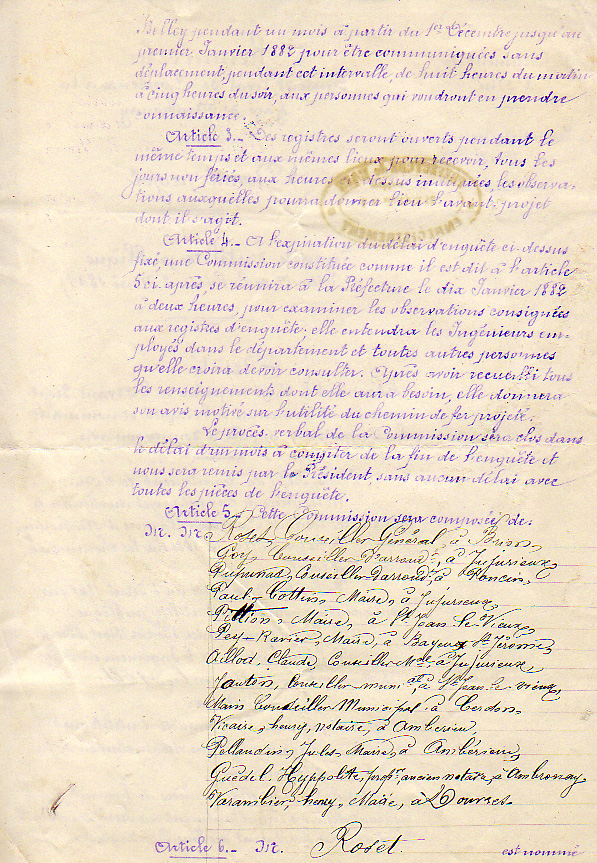 Belley pendant un mois à partir du 1er Décembre jusqu'au
premier Janvier 1882 pour être communiquées sans
déplacement, pendant cet intervalle, de huit heures du matin
à cinq heures du soir, aux personnes qui voudront en prendre
connaissance.
Article 3._ Des registres seront ouverts pendant le
même temps et aux mêmes lieux pour recevoir, tous les
jours non fériés, aux heures ci-dessus indiquées, les observa-
tions auxquelles pourra donner lieu l'avant-projet
dont il s'agit.
Article 4._ A l'expiration du délai d'enquête ci-dessus
fixé, une Commission constituée comme il est dit à l'article
5 ci-après se réunira à la Préfecture le dix Janvier 1882
à deux heures, pour examiner les observations consignées
aux registres d'enquête; elle entendra les Ingénieurs em-
ployés dans le département et toutes autres personnes
qu'elle croira devoir consulter. Après avoir recueilli tous
les renseignements dont elle aura besoin, elle donnera
son avis motivé sur l'utilité du chemin de fer projeté.
Le procès-verbal de la Commission sera clos dans
le délai d'un mois à compter de la fin de l'enquête et
nous sera remis par le Président, sans aucun délai avec
toutes les pièces de l'enquête.
Article 5._ Cette Commission sera composée de:
M. M. Roset, Conseiller Général, à
Goy, Conseiller d'arrondt, à Jujurieux
Conseiller d'arrondt, à Poncin,
Paul Cottin, Maire, à Jujurieux,
Maire, à St Jean le Vieux,
Pey-Ravier, Maire, à St Jérome,
Aillod, Claude, Conseiller Mal, à Jujurieux,
Conseiller munical, à St Jean-le-vieux,
Conseiller Municipal à Cerdon,
Vicaire, henry, notaire, à Ambérieu,
Pellaudin, Jules, Maire, à Ambérieux,
Guédel, Hyppolitte, propre, ancien notaire, à Ambronay
Varambier, henry, Maire, à Douvres.
Article 6._ M. Roset. est nommé